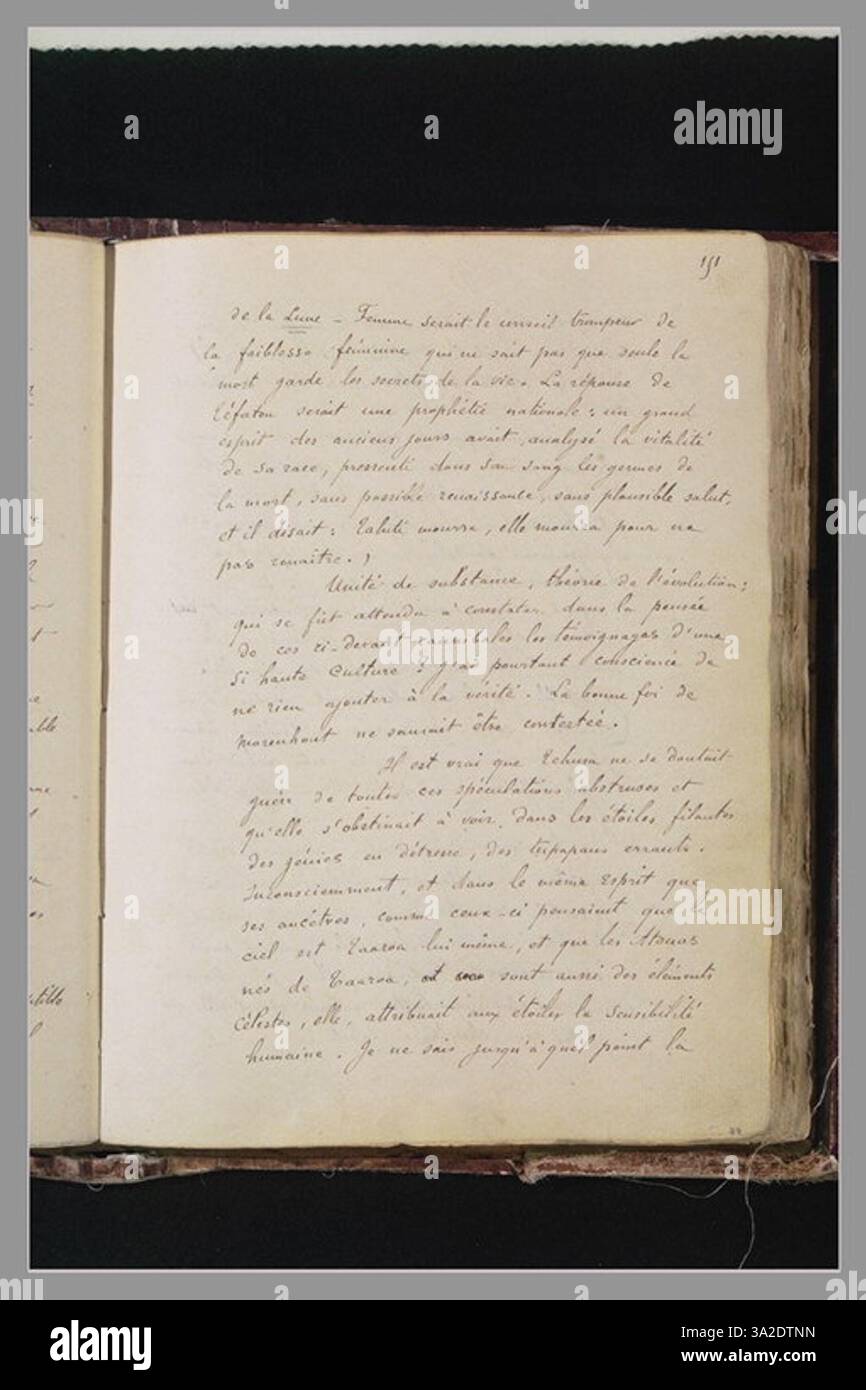 151
de la Lune – Femme serait le conseil trompeur de
la faiblesse féminine qui ne sait pas que seule la
mort garde les secrets de la vie. La réponse de
Téfatou serait une prophétie nationale : un grand
esprit des anciens jours avait analysé la vitalité
de sa race, pressenti dans son sang les germes de
la mort, sans possible renaissance, sans plausible salut,
et il disait : Tahiti mourra, elle mourra pour ne
pas renaître. )
Unité de substance, théorie de l'évolution :
qui se fût attendu à constater dans la pensée
de ces ci-devant cannibales les témoignages d'une
si haute culture ? J'ai pourtant conscience de
ne rien ajouter à la vérité. La bonne foi de
Morenhout ne saurait être contestée.
Il est vrai que Tehura ne se doutait
guère de toutes ces spéculations abstruses et
qu'elle s'obstinait à voir dans les étoiles filantes
des génies en détresse, des tupapaus errants.
Inconsciemment, et dans le même esprit que
ses ancêtres, comme ceux-ci pensaient que le
ciel est Taaroa lui même, et que les Atouas
nés de Taaroa, sont aussi des éléments
célestes, elle, attribuait aux étoiles la sensibilité
humaine. Je ne sais jusqu'à quel point la
alamy
alamy
Image ID: 3A2DTNN
www.alamy.com